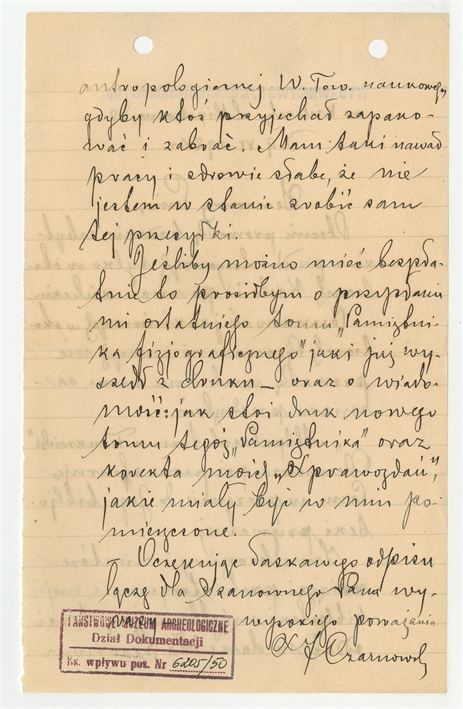 antropologicznej W. Tow. naukowego,
gdyby ktoś przyjechał zapako-
wać i zabrać. Mam taki nawał
pracy i zdrowie słabe, że nie
jestem w stanie zrobić sam
tej przesyłki.
Jeśliby można mieć bezpła-
tnie to prosiłbym o przysłanie
mi ostatniego tomu „Pamiętni-
ka fizjograficznego" jaki już wy-
szedł z druku — oraz o wiado-
mość: jak stoi druk nowego
tomu tegoż „Pamiętnika" oraz
korekta moich „Sprawozdań",
jakie miały być w nim po-
mieszczone.
— Oczekując łaskawego odpisu
łączę dla Szanownego Pana wy-
razy wysokiego poważania
S J Czarnowski
PAŃSTWOWE MUZEUM ARCHEOLOGICZNE
Dział Dokumentacji
Ks. wpływu poz. Nr 6205/50